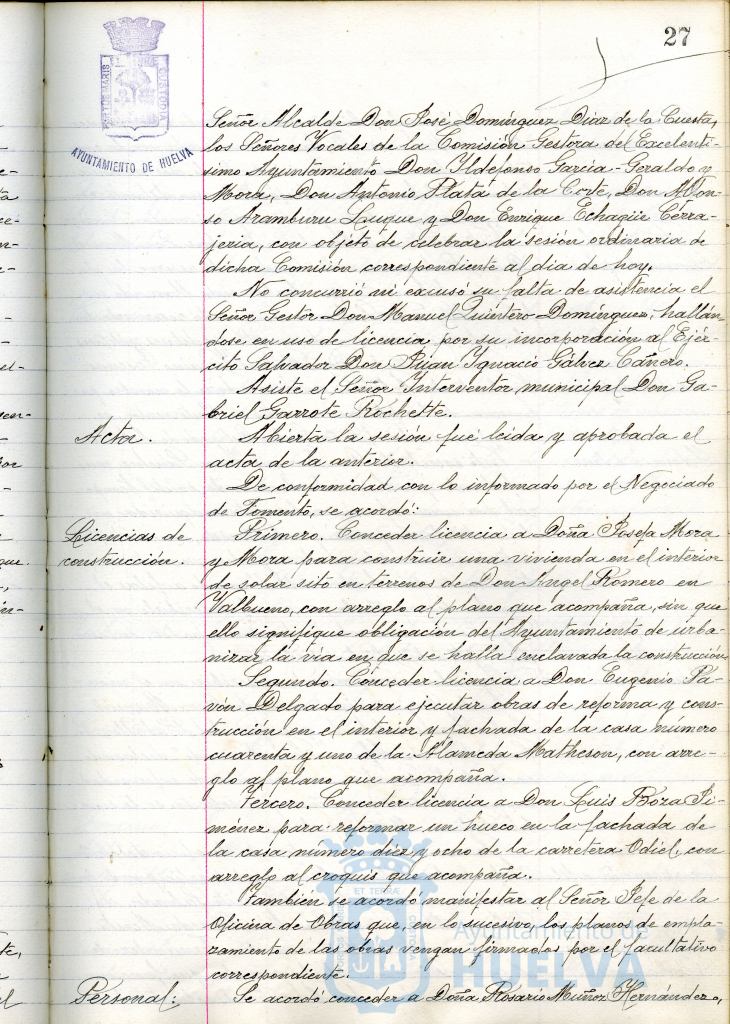 27
PORTUS MARIS ET TERRE CUSTODIA
AYUNTAMIENTO DE HUELVA
Señor Alcalde Don José Domínguez Díaz de la Cuesta,
los Señores Vocales de la Comisión Gestora del Excelentí-
simo Ayuntamiento Don Ildefonso García-Geraldo y
Mora, Don Antonio Plata de la Corte, Don Alfon-
so Aramburu Luque y Don Enrique Echagüe Cerra-
jería, con objeto de celebrar la sesión ordinaria de
dicha Comisión correspondiente al día de hoy.
No concurrió ni excusó su falta de asistencia el
Señor Gestor Don Manuel Quintero Domínguez, hallán-
dose en uso de licencia por su incorporación al Ejér-
cito Salvador Don Juan Ignacio Gálvez Cañero.
Asiste el Señor Interventor municipal Don Ga-
briel Garrote Rochette.
Acta.
Abierta la sesión fué leída y aprobada el
acta de la anterior.
De conformidad con lo informado por el Negociado
de Fomento, se acordó:
Licencias de
construcción.
Primero. Conceder licencia a Doña Josefa Mora
y Mora para construir una vivienda en el interior
de solar sito en terrenos de Don Angel Romero en
Valbueno, con arreglo al plano que acompaña, sin que
ello signifique obligación del Ayuntamiento de urba-
nizar la vía en que se halla enclavada la construcción.
Segundo. Conceder licencia a Don Eugenio Pa-
vón Delgado para ejecutar obras de reforma y cons-
trucción en el interior y fachada de la casa número
cuarenta y uno de la Alameda Matheson, con arre-
glo al plano que acompaña.
Tercero. Conceder licencia a Don Luis Boza Ji-
ménez para reformar un hueco en la fachada de
la casa número diez y ocho de la carretera Odiel, con
arreglo al croquis que acompaña.
También se acordó manifestar al Señor Jefe de la
Oficina de Obras que, en lo sucesivo, los planos de empla-
zamiento de las obras vengan firmados por el facultativo
correspondiente.
Personal:
Se acordó conceder a Doña Rosario Muñoz Hernández,
ET TERRÆ
Ayuntamiento de
HUELVA